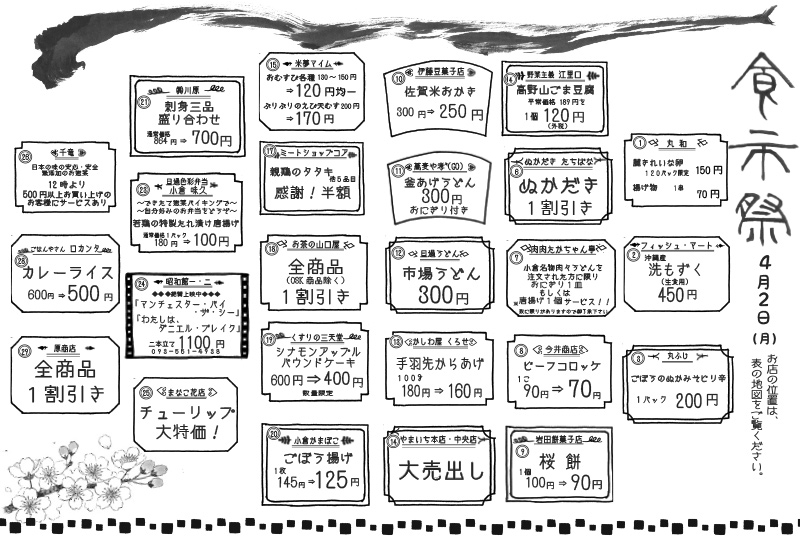 食市祭
4月2日(月)
お店の位置は、
表の地図をご覧ください。
① 丸和
麓きれいな卵
120パック限定 150円
揚げ物 1串
70円
② フィッシュ・アート
沖縄産
洗もずく
(生食用)
450円
③ 丸ふじ
ごぼうのぬかみそピリ辛
1パック 200円
⑥ ぬかだき たちばな
ぬかだき
1割引き
⑦ 肉肉たかちゃん亭
小倉名物肉々うどんを
注文された方に限り
おにぎり1皿
もしくは
唐揚げ1個サービス!!
※数に限りがありますので御了承下さい
⑧ 今井商店
ビーフコロッケ
1コ
90円⇒70円
⑨ 岩田餅菓子店
桜餅
1個
100円⇒90円
⑩ 伊藤豆菓子店
佐賀米おかき
300円⇒250円
⑪ 蕎麦や考(GO)
釜あげうどん
300円
おにぎり付き
⑫ 旦過うどん
市場うどん
300円
⑬ かしわ屋 くろせ
手羽先からあげ
100g
180円⇒160円
⑭ やまいち本店・中央店
大売出し
⑭ 野菜主義 江里口
高野山ごま豆腐
平常価格 189円を
1個 120円
(外税)
⑮ 米夢マイム
おむすび各種180~150円
⇒120円均一
ぷりぷりのえび天むす200円
⇒170円
⑰ ミートショップコア
親鶏のタタキ
他5品目
感謝!半額
⑱ お茶の山口屋
全商品
(OSK商品除く)
1割引き
⑲ くすりの三天堂
シナモンアップル
パウンドケーキ
600円⇒400円
数量限定
⑳ 小倉かまぼこ
ごぼう揚げ
1枚
145円⇒125円
㉑ ㈲川原
刺身三品
盛り合わせ
通常価格
864円⇒700円
㉓ 旦過色彩弁当
小倉 味久
~できたて惣菜バイキングで~
~自分好みのお弁当をどうぞ~
若鶏の特製たれ漬け唐揚げ
通常価格1パック
180円⇒100円
㉔ 昭和館一・二
◆◆◆絶賛上映中◆◆◆
「マンチェスター・バイ
・ザ・シー」
「わたしは、
ダニエル・ブレイク」
二本立て1100円
093-551-4938
㉕ まなご花店
チューリップ
大特価!
㉖ 千竜
日本の味の安心・安全
無添加のお惣菜
12時より
500円以上お買い上げの
お客様にサービスあり
㉘ ごはんやさん ロカンタ
カレーライス
600円⇒500円
㉙ 原商店
全商品
1割引き